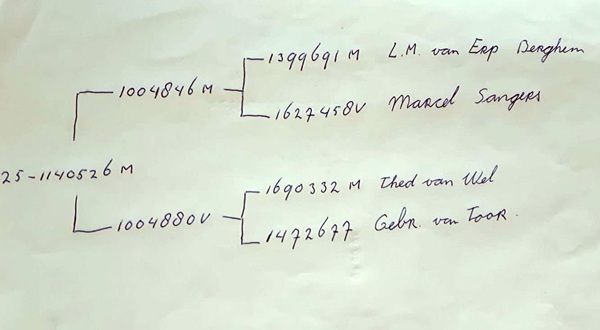 1399691 M L.M. van Erp Berghem
1004846 M
1627458V Marcel Sangers
25-1140526 M
1690332 M Thed van Wel
1004880V
1472677 Gebr. van Toor.